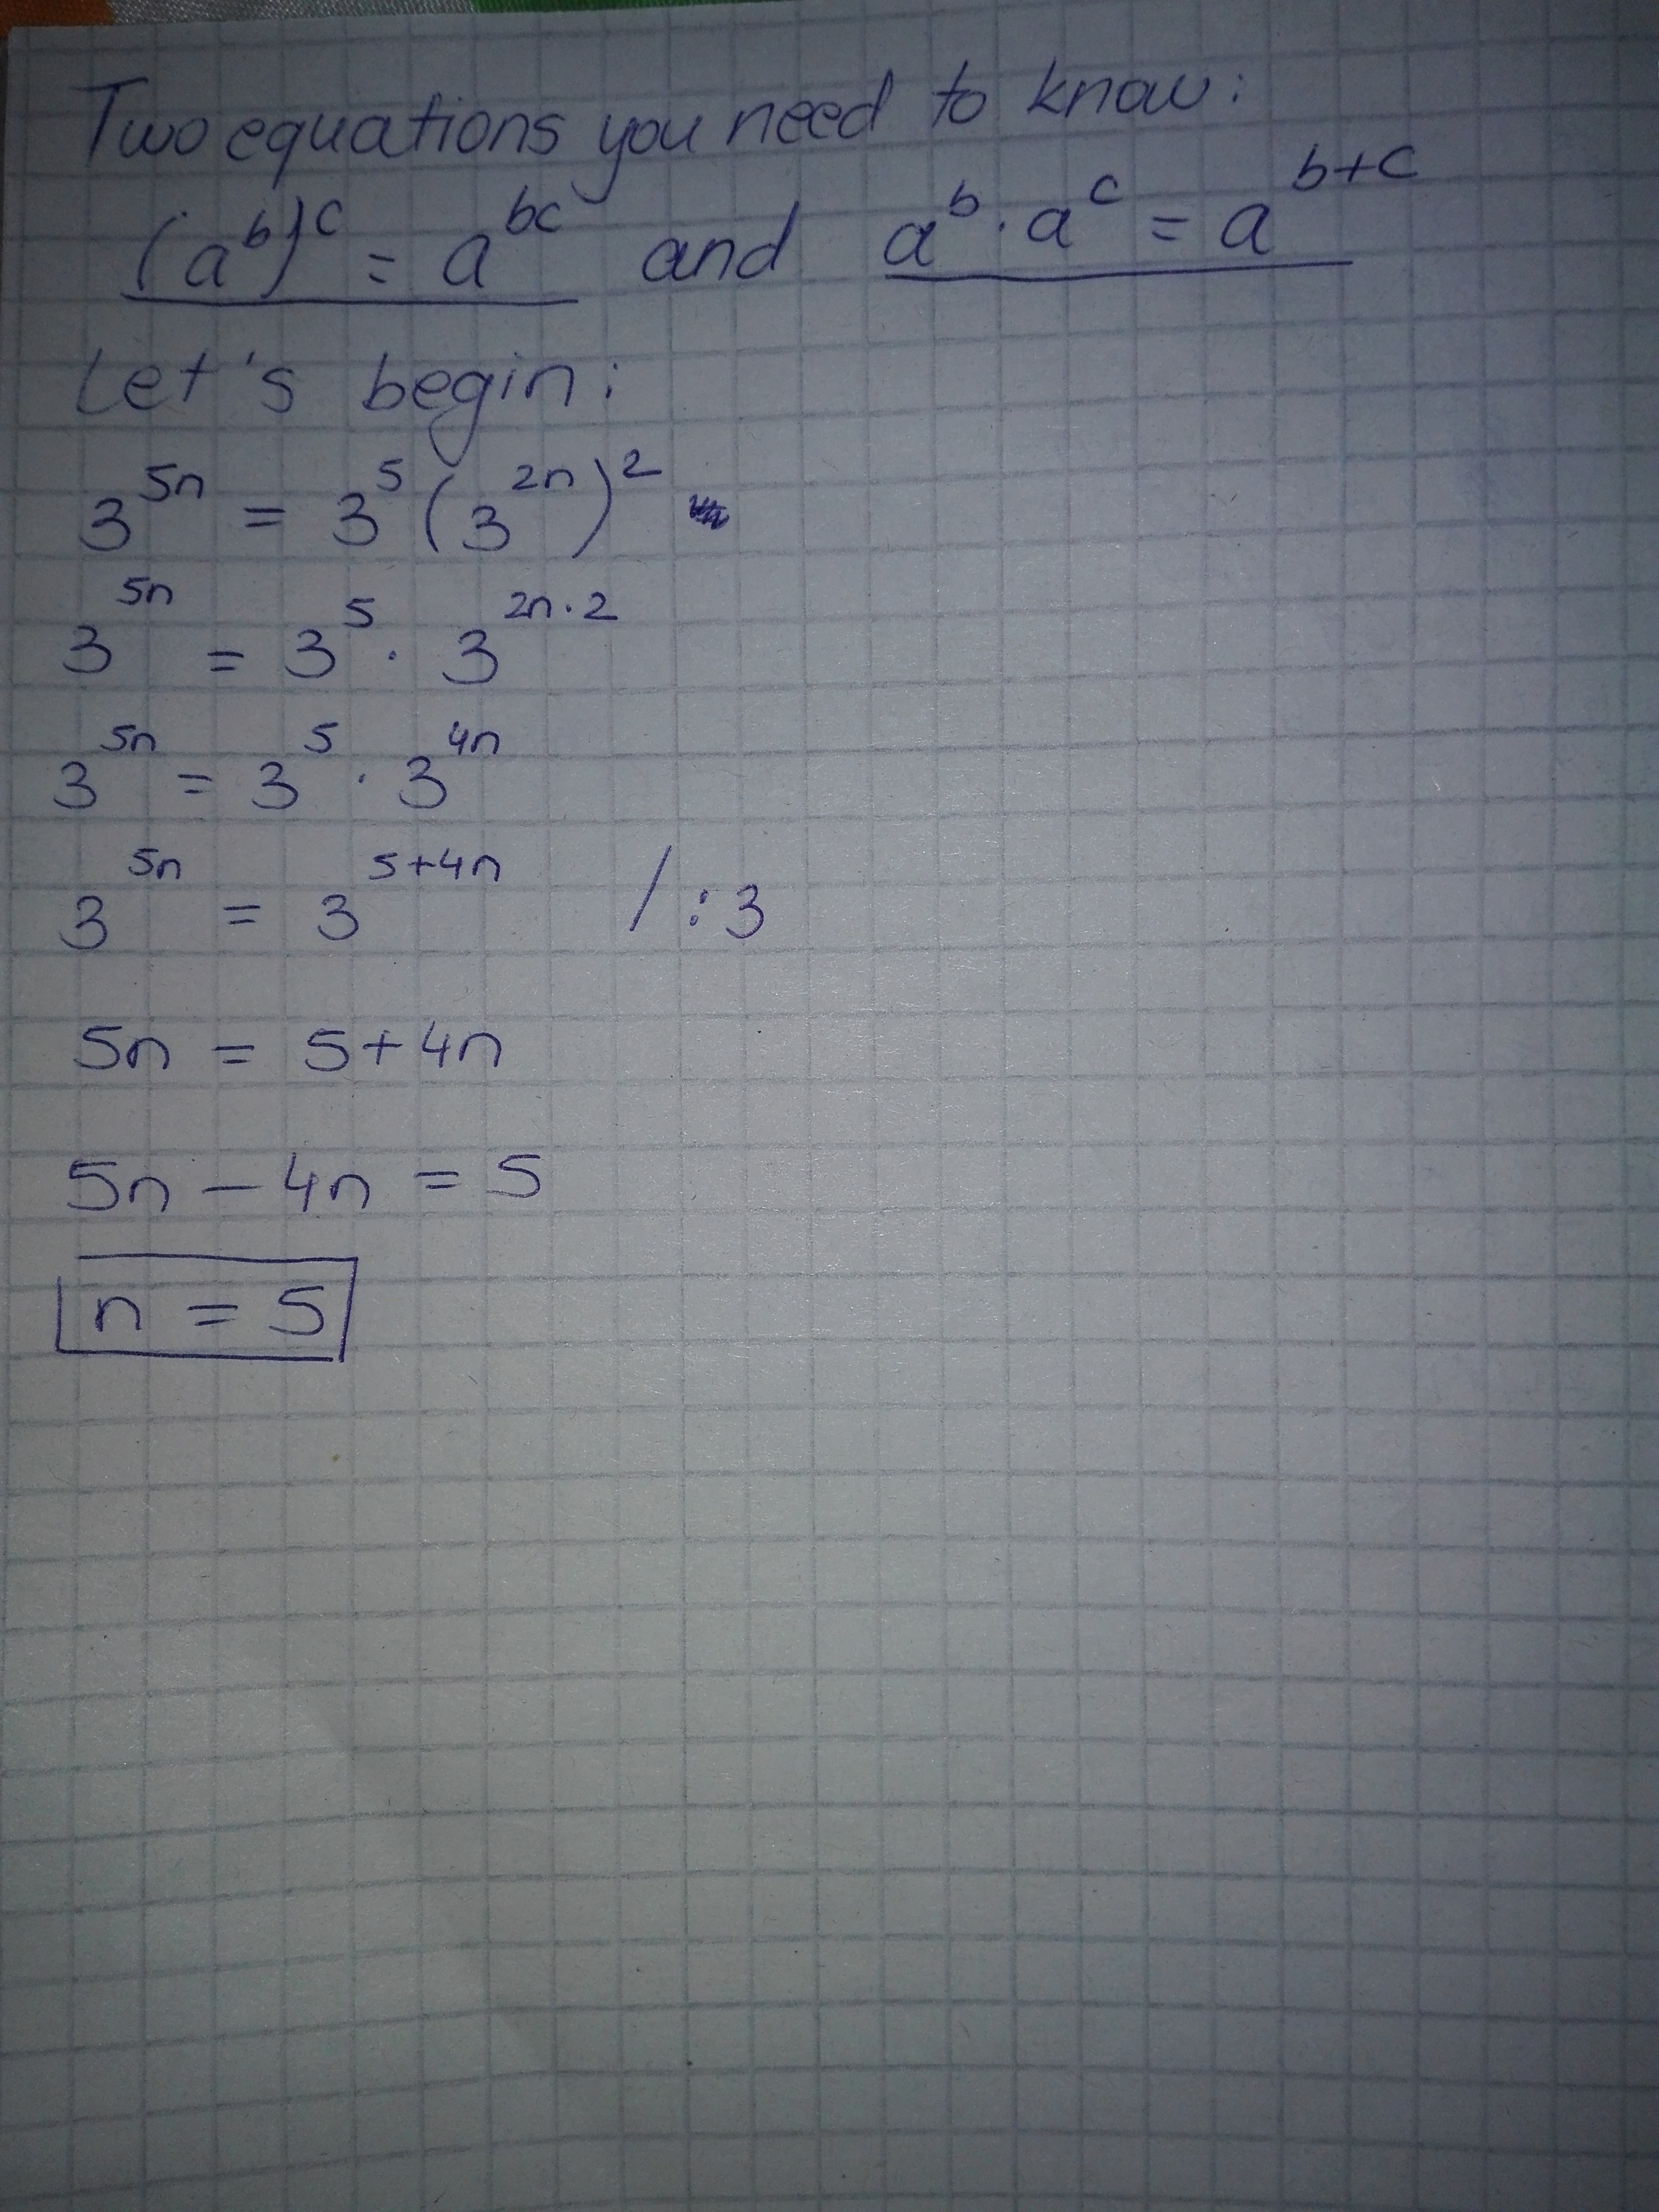 Two equations you need to know:
(a^b)^c = a^bc and a^b · a^c = a^b+c
Let's begin:
3^5n = 3^5 (3^2n)^2
3^5n = 3^5 · 3^2n·2
3^5n = 3^5 · 3^4n
3^5n = 3^5+4n / :3
5n = 5+4n
5n - 4n = 5
n = 5